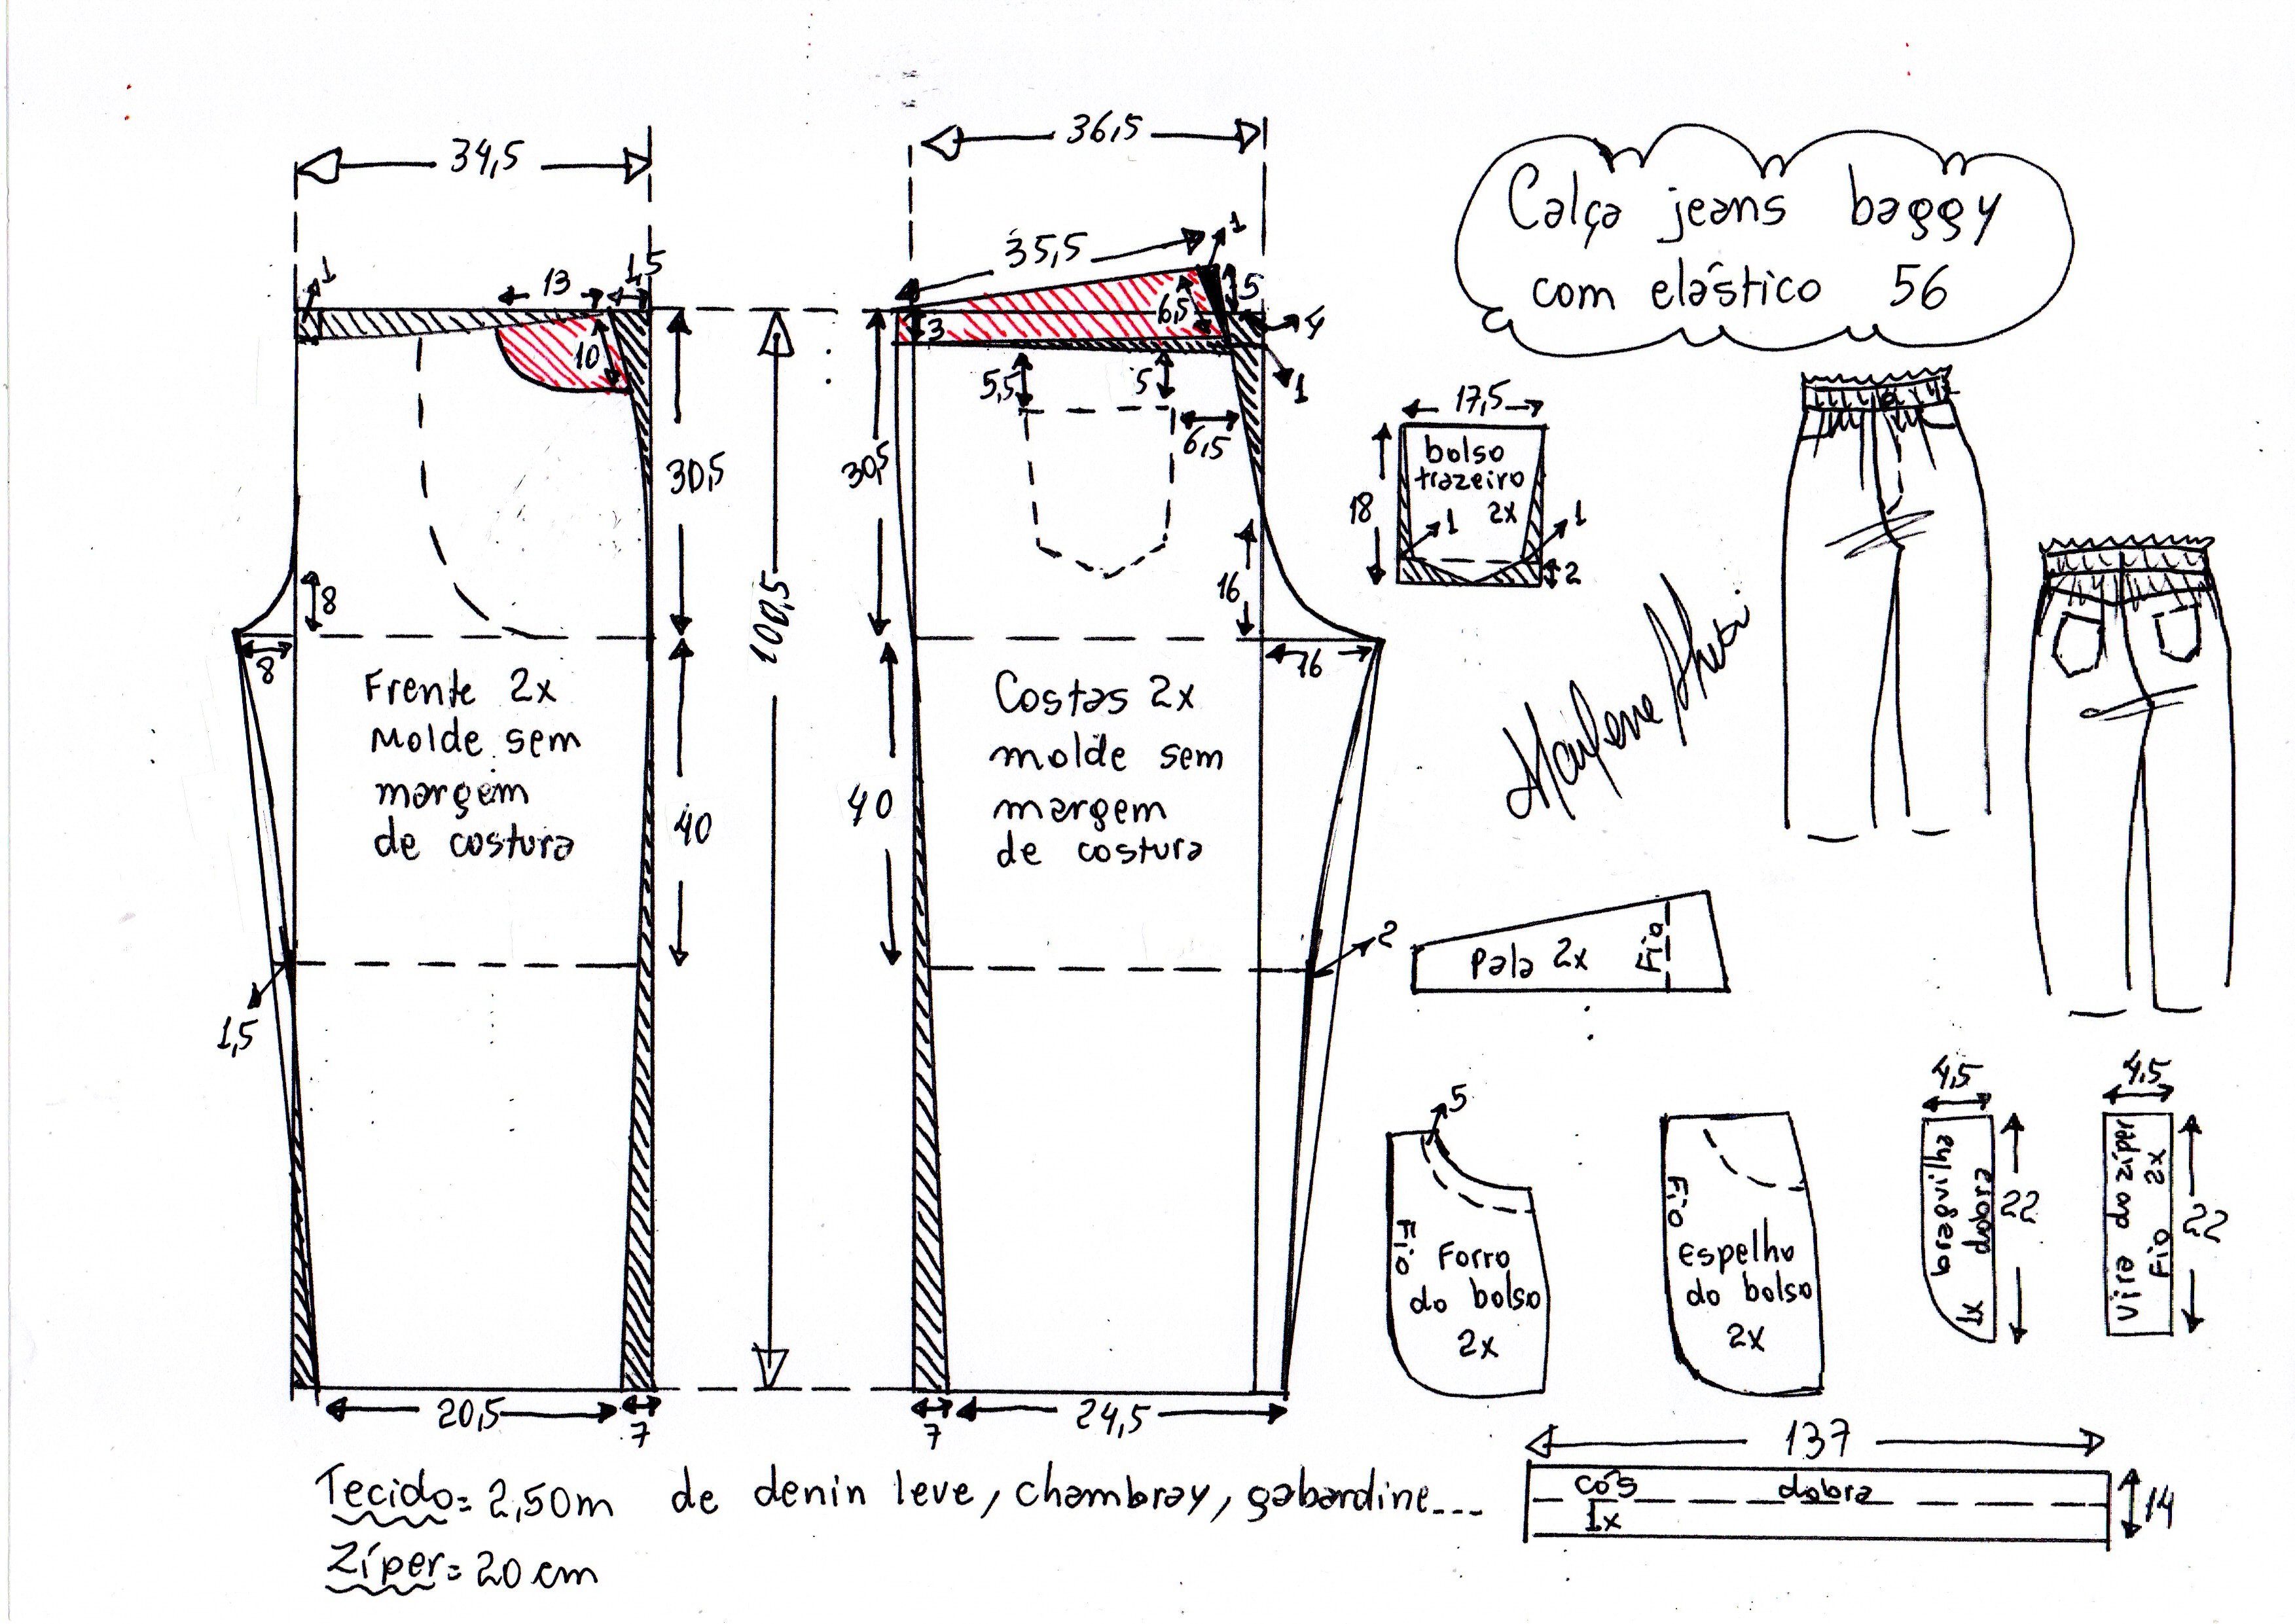 Calça jeans baggy
com elástico 56
34,5
1
13
1,5
10
30,5
8
8
Frente 2x
Molde sem
margem
de costura
40
1,5
20,5
7
100,5
36,5
35,5
1
5
6,5
3
4
1
5,5
5
6,5
30,5
16
16
Costas 2x
molde sem
margem
de costura
40
2
7
24,5
17,5
bolso
trazeiro
2x
18
1
1
2
Pala 2x
Fio
5
Fio
Forro
do bolso
2x
Fio
Espelho
do bolso
2x
4,5
braguilha
1x dobra
22
4,5
Vira do zíper
Fio 2x
22
137
cós
dobra
1x
14
Tecido= 2,50m de denin leve, chambray, gabardine...
Zíper= 20 cm